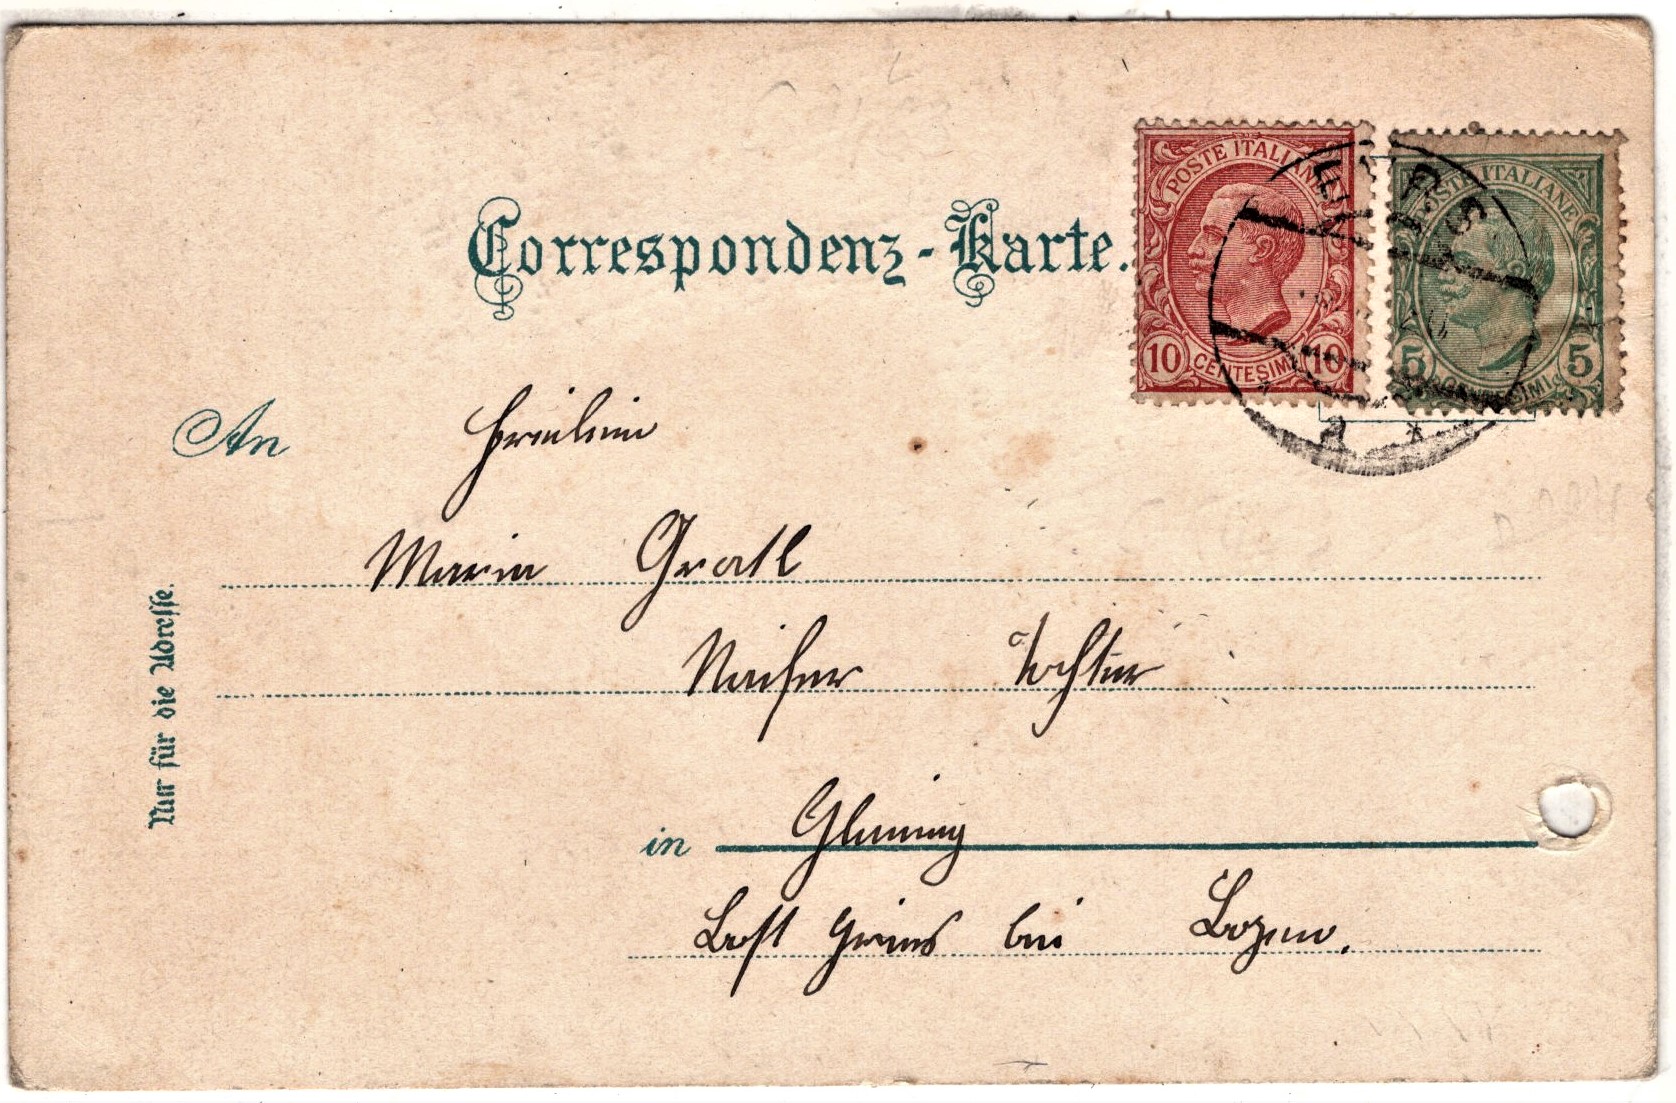 Correspondenz-Karte.
POSTE ITALIANE
10 CENTESIMI 10
POSTE ITALIANE
5 CENTESIMI 5
An Fräulein
Maria Gratl
Tochter
in Glaning
Post Gries bei Bozen.
Nur für die Adresse.